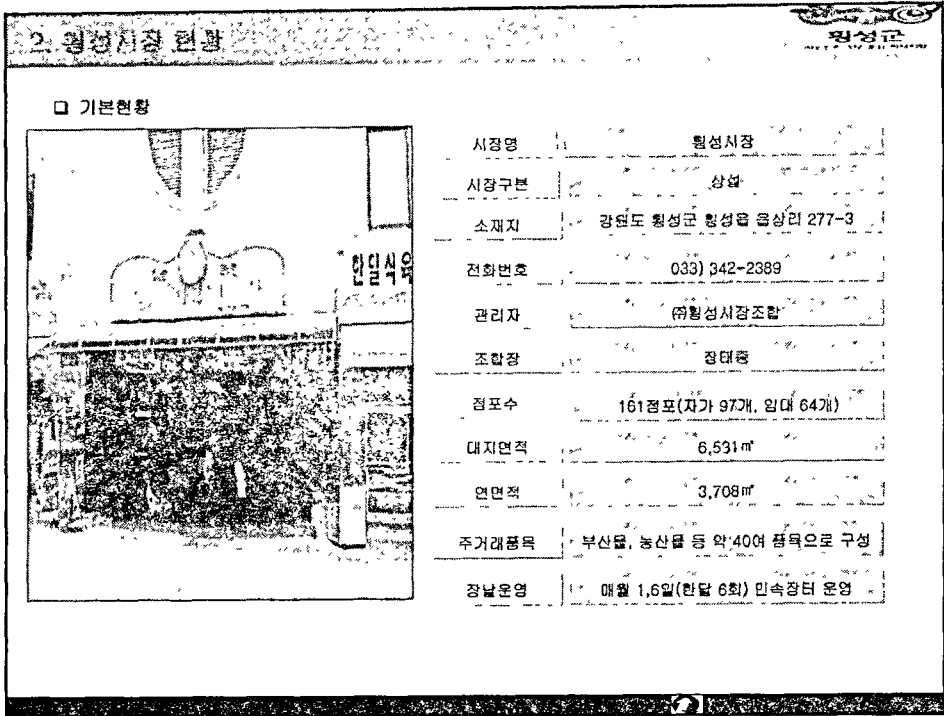 2. 횡성시장 현황
횡성군
□ 기본현황
한달식육
시장명 횡성시장
시장구분 상설
소재지 강원도 횡성군 횡성읍 읍상리 277-3
전화번호 033) 342-2389
관리자 ㈜횡성시장조합
조합장 장태종
점포수 161점포(자가 97개, 임대 64개)
대지면적 6,531㎡
연면적 3,708㎡
주거래품목 부산물, 농산물 등 약 40여 품목으로 구성
장날운영 매월 1,6일(한달 6회) 민속장터 운영